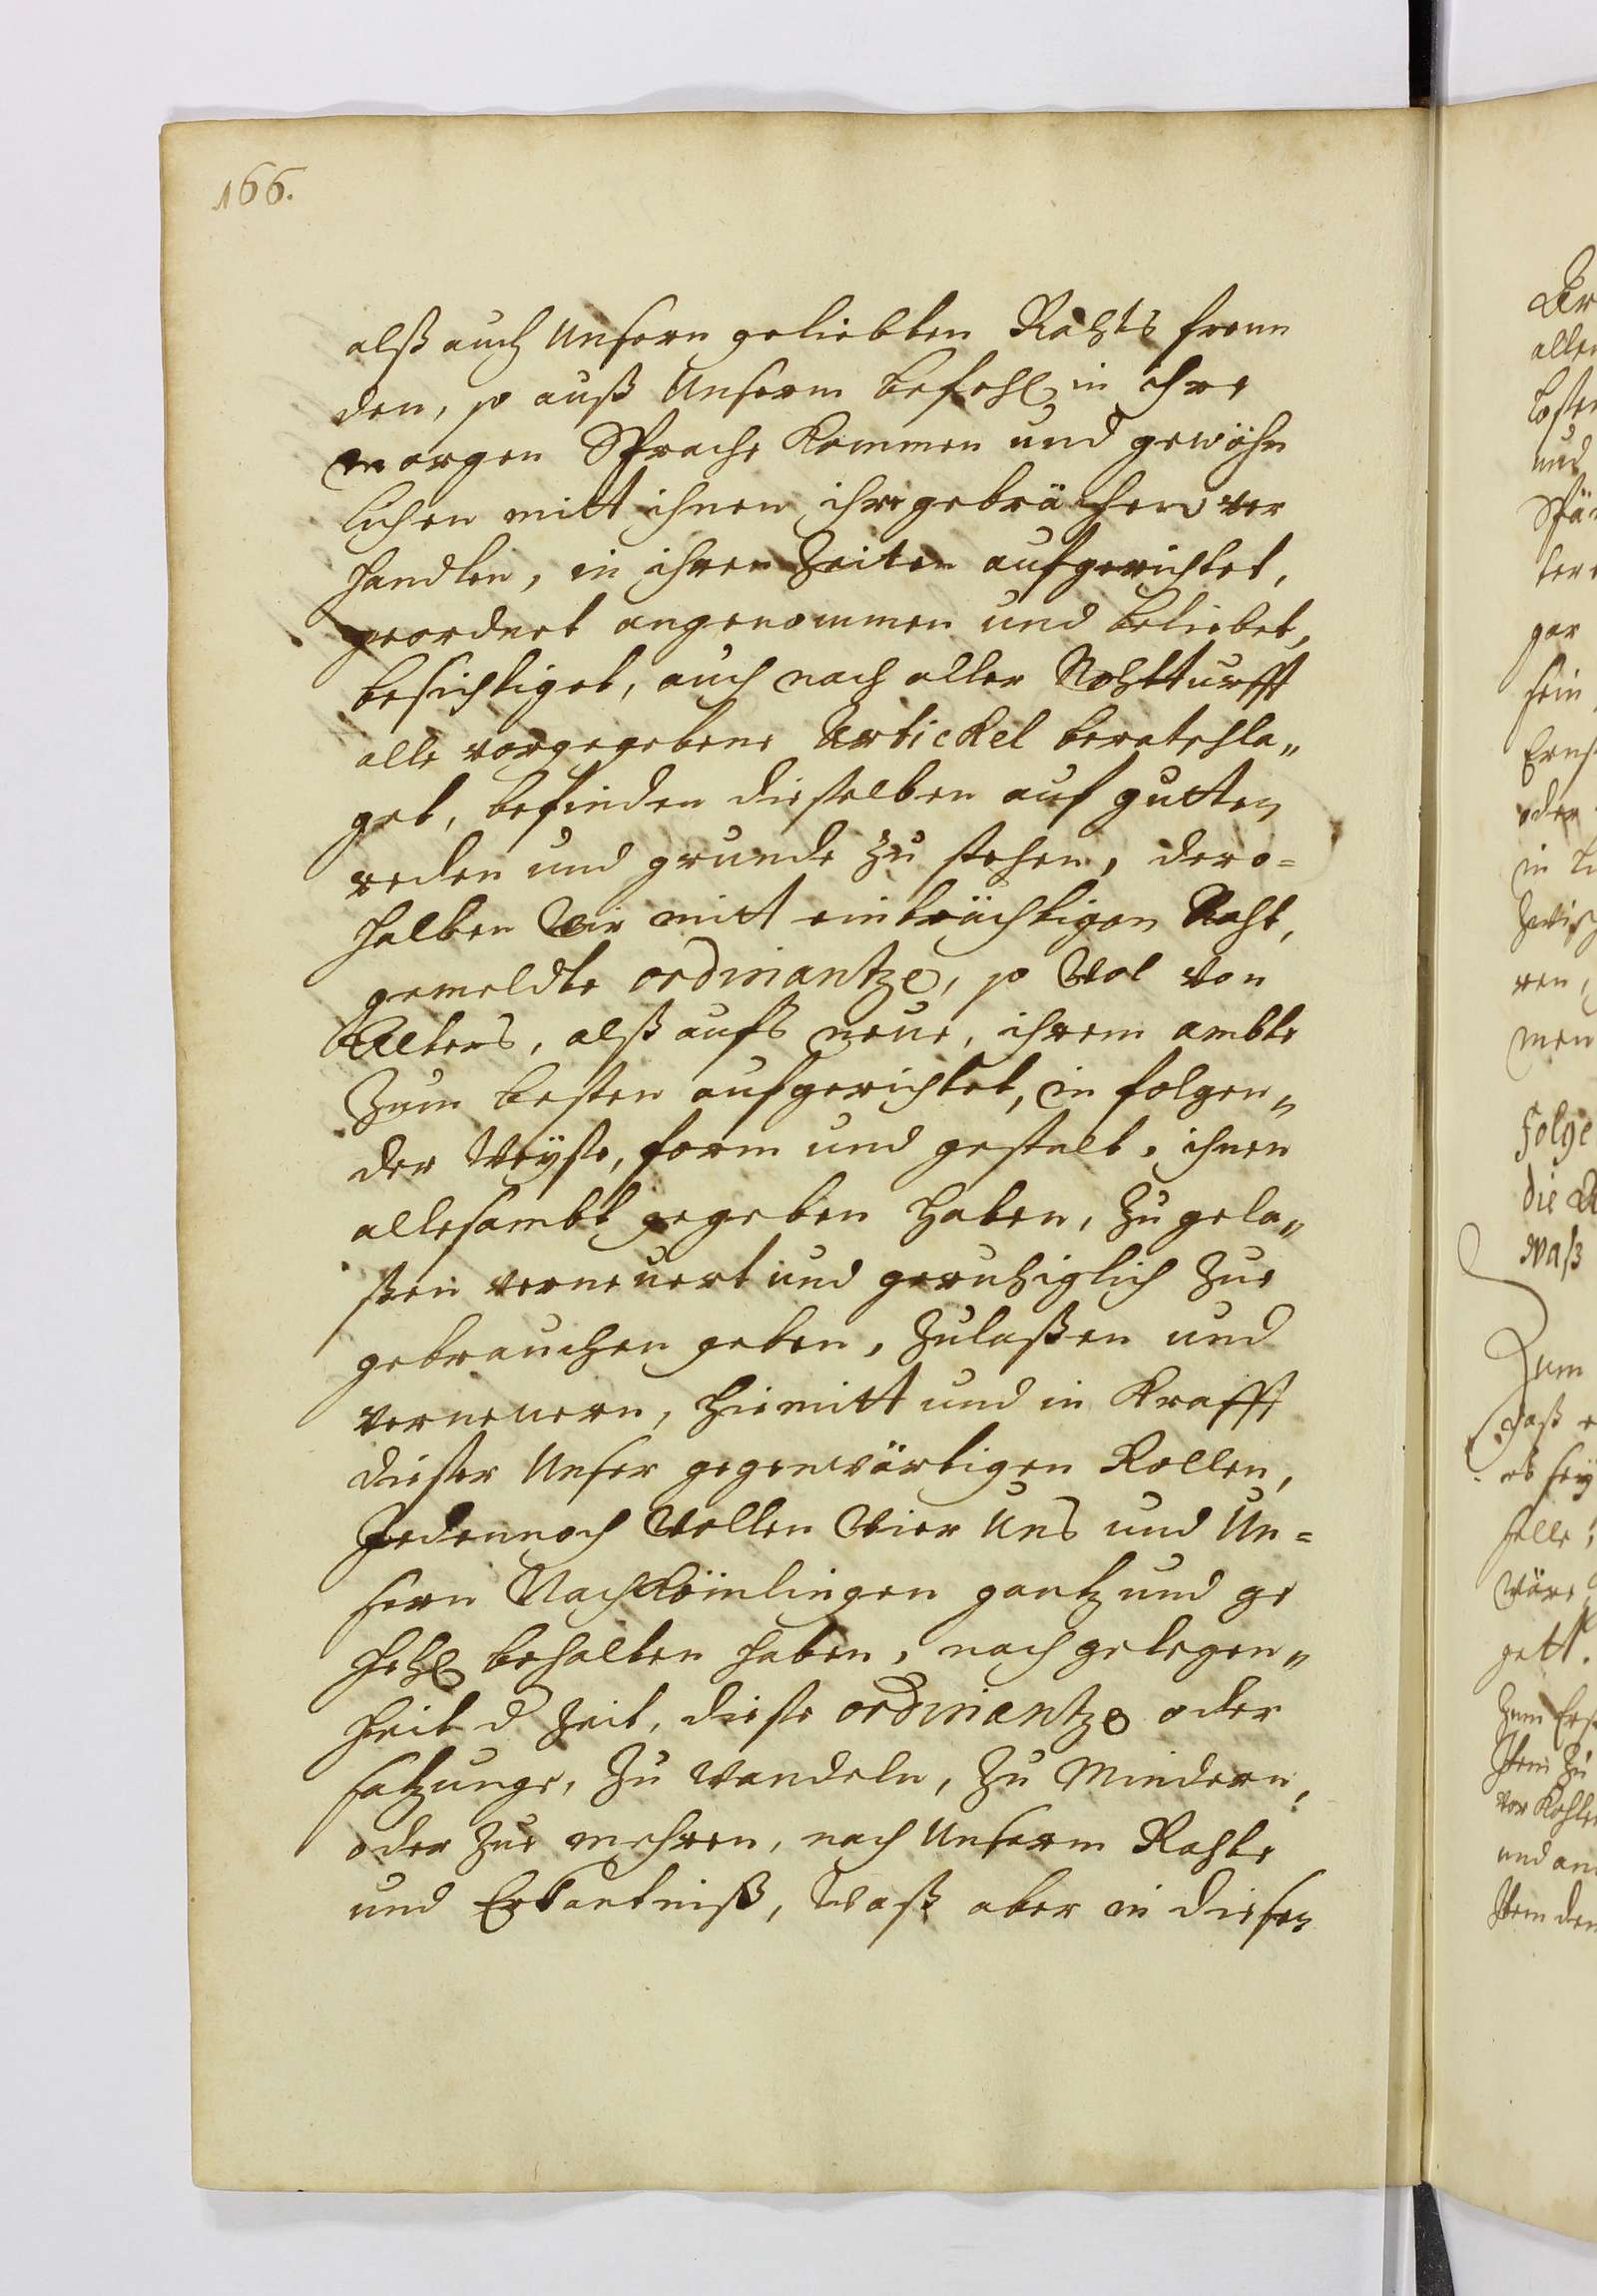 166.
alß auch Unsern geliebten Rahts freun
den, so auß Unserm befehl in ihre
morgen Sprache kommen und gewöhn
lichen mitt ihnen ihre gebräuchen ver
handlen, in ihren Zeiten aufgerichtet,
geordnet angenommen und beliebet,
besichtiget, auch nach aller Nohtturfft
alle vorgegebene Artickel beratschla„
get, befinden dieselben auf gutten
reden und grunde zu stehen, dero=
halben Wir mitt einträchtigen Raht,
gemeldte ordinantze, so Wol von
Alters, alß aufs neue, ihrem ambte
Zum besten aufgerichtet, in folgen„
der Weyse, form und gestalt, ihnen
allesambt gegeben haben, zu gela„
ßen verneuert und geruhiglich zue
gebrauchen geben, zulaßen und
verneuern, hiemitt und in Krafft
dieser Unser gegenwärtigen Rollen,
Jedennoch Wollen Wier Uns und Un=
sern Nachkömlingen gantz und ge
hehl behalten haben, nach gelegen„
heit d Zeit, diese ordinantze oder
satzunge, zu wandeln, zu Mindern,
oder zue mehren, nach Unserm Rahte
und Erkantniß, Waß aber in diesen
alle
und
gar
sein
oder
in
ren,
men
folge
die
waß
Zum
daß
ob sey
wäre
gott.
Zum
Item zu
und an
Item den